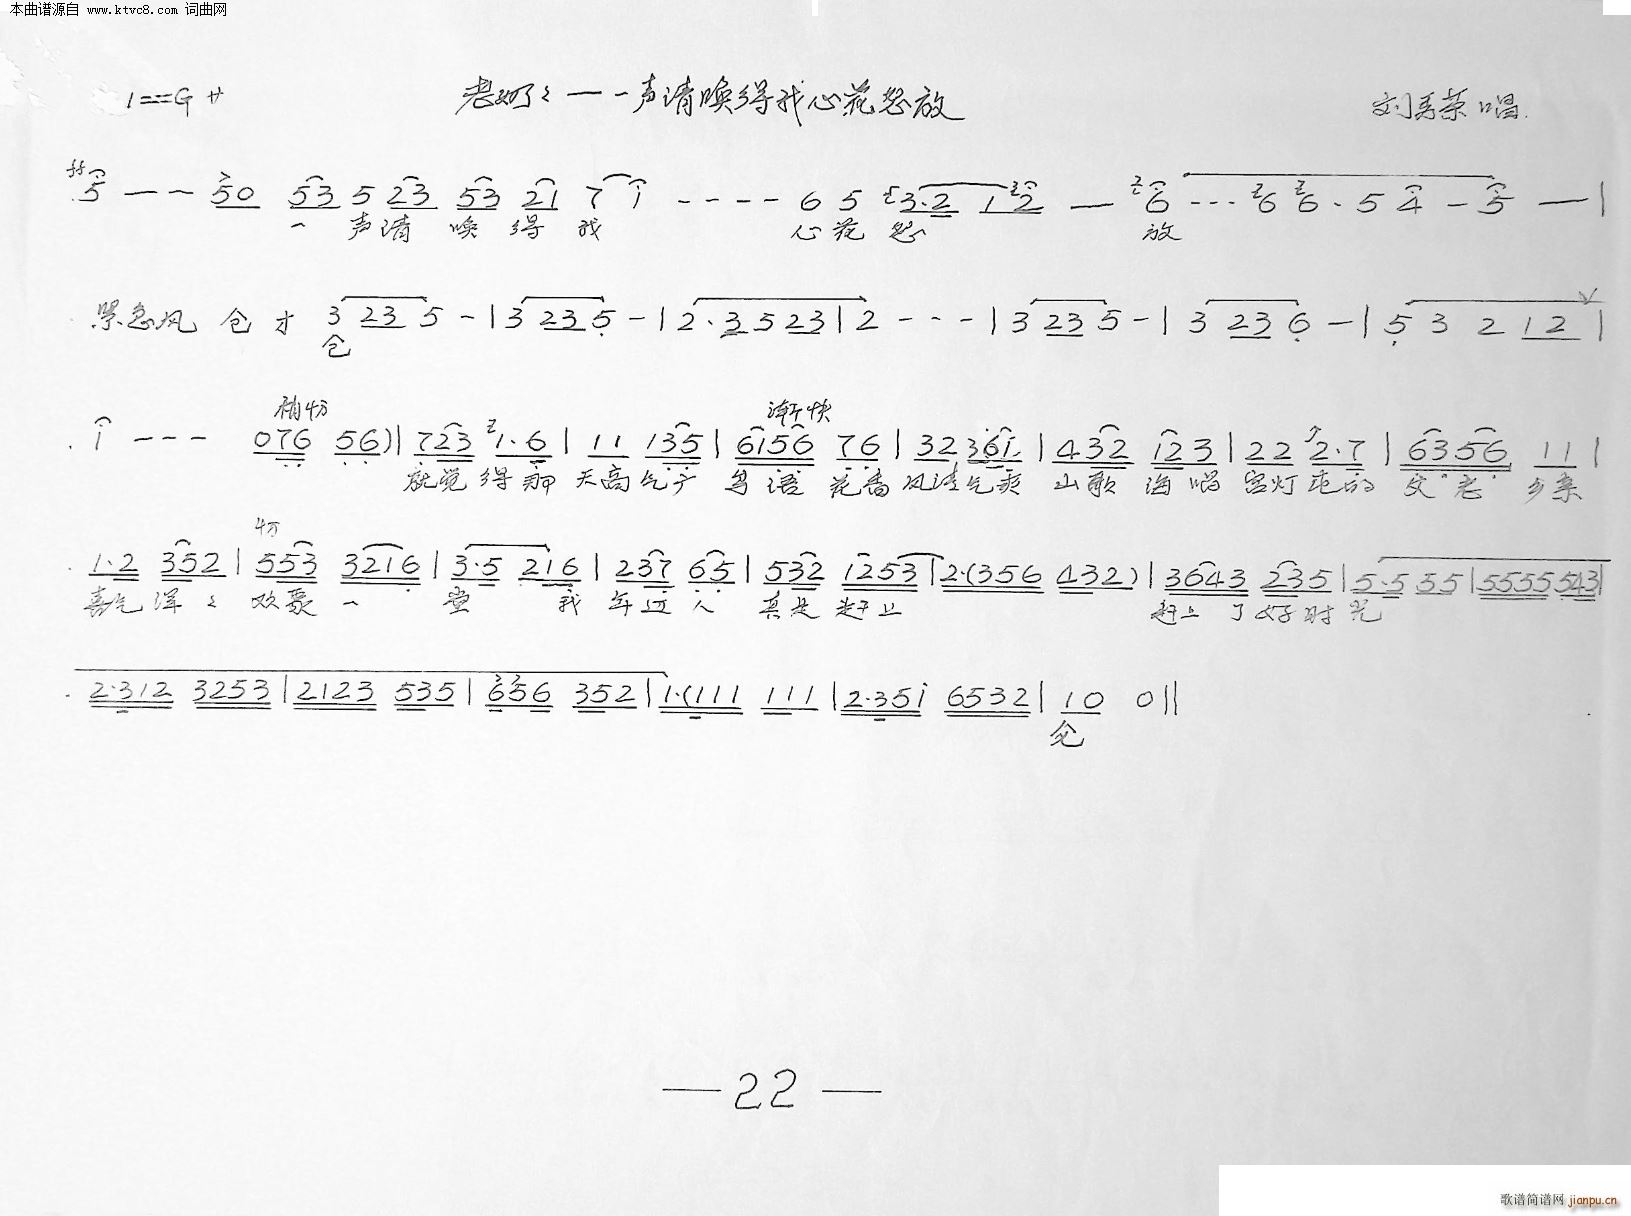 本曲谱源自 www.ktvc8.com 词曲网
1==G サ
老奶々 一 一声请唤得我心花怒放
刘秀荣 唱.
5 — — 50 53 5 23 53 21 7 i - - - - 6 5 3·2 12 — 6 - - - 6 6 · 5 4 - 5 — |
一 声请 唤 得 我 心 花 怒 放
紧急风 仓 才 3 23 5 - | 3 23 5 - | 2·3 5 23 | 2 - - - | 3 23 5 - | 3 23 6 - | 5 3 2 12 |
仓
稍切 渐快
i - - - 076 56) | 723 1·6 | 11 135 | 6156 76 | 32 361 | 432 123 | 22 2·7 | 6356 11 |
就觉 得那 天高气 鸟语 花香 风清气爽 山歌 海唱 宫灯 屯的 父老 乡亲
切
1·2 352 | 553 3216 | 3·5 216 | 237 65 | 532 1253 | 2·(356 432) | 3643 235 | 5·5 55 | 5555 543 |
喜气 洋々 欢聚 一 堂 我 年过 人 真是 赶上 赶上 了好时光
2·312 3253 | 2123 535 | 656 352 | 1·(111 111 | 2·35i 6532 | 10 0 ||
仓
— 22 —
歌谱简谱网 jianpu.cn